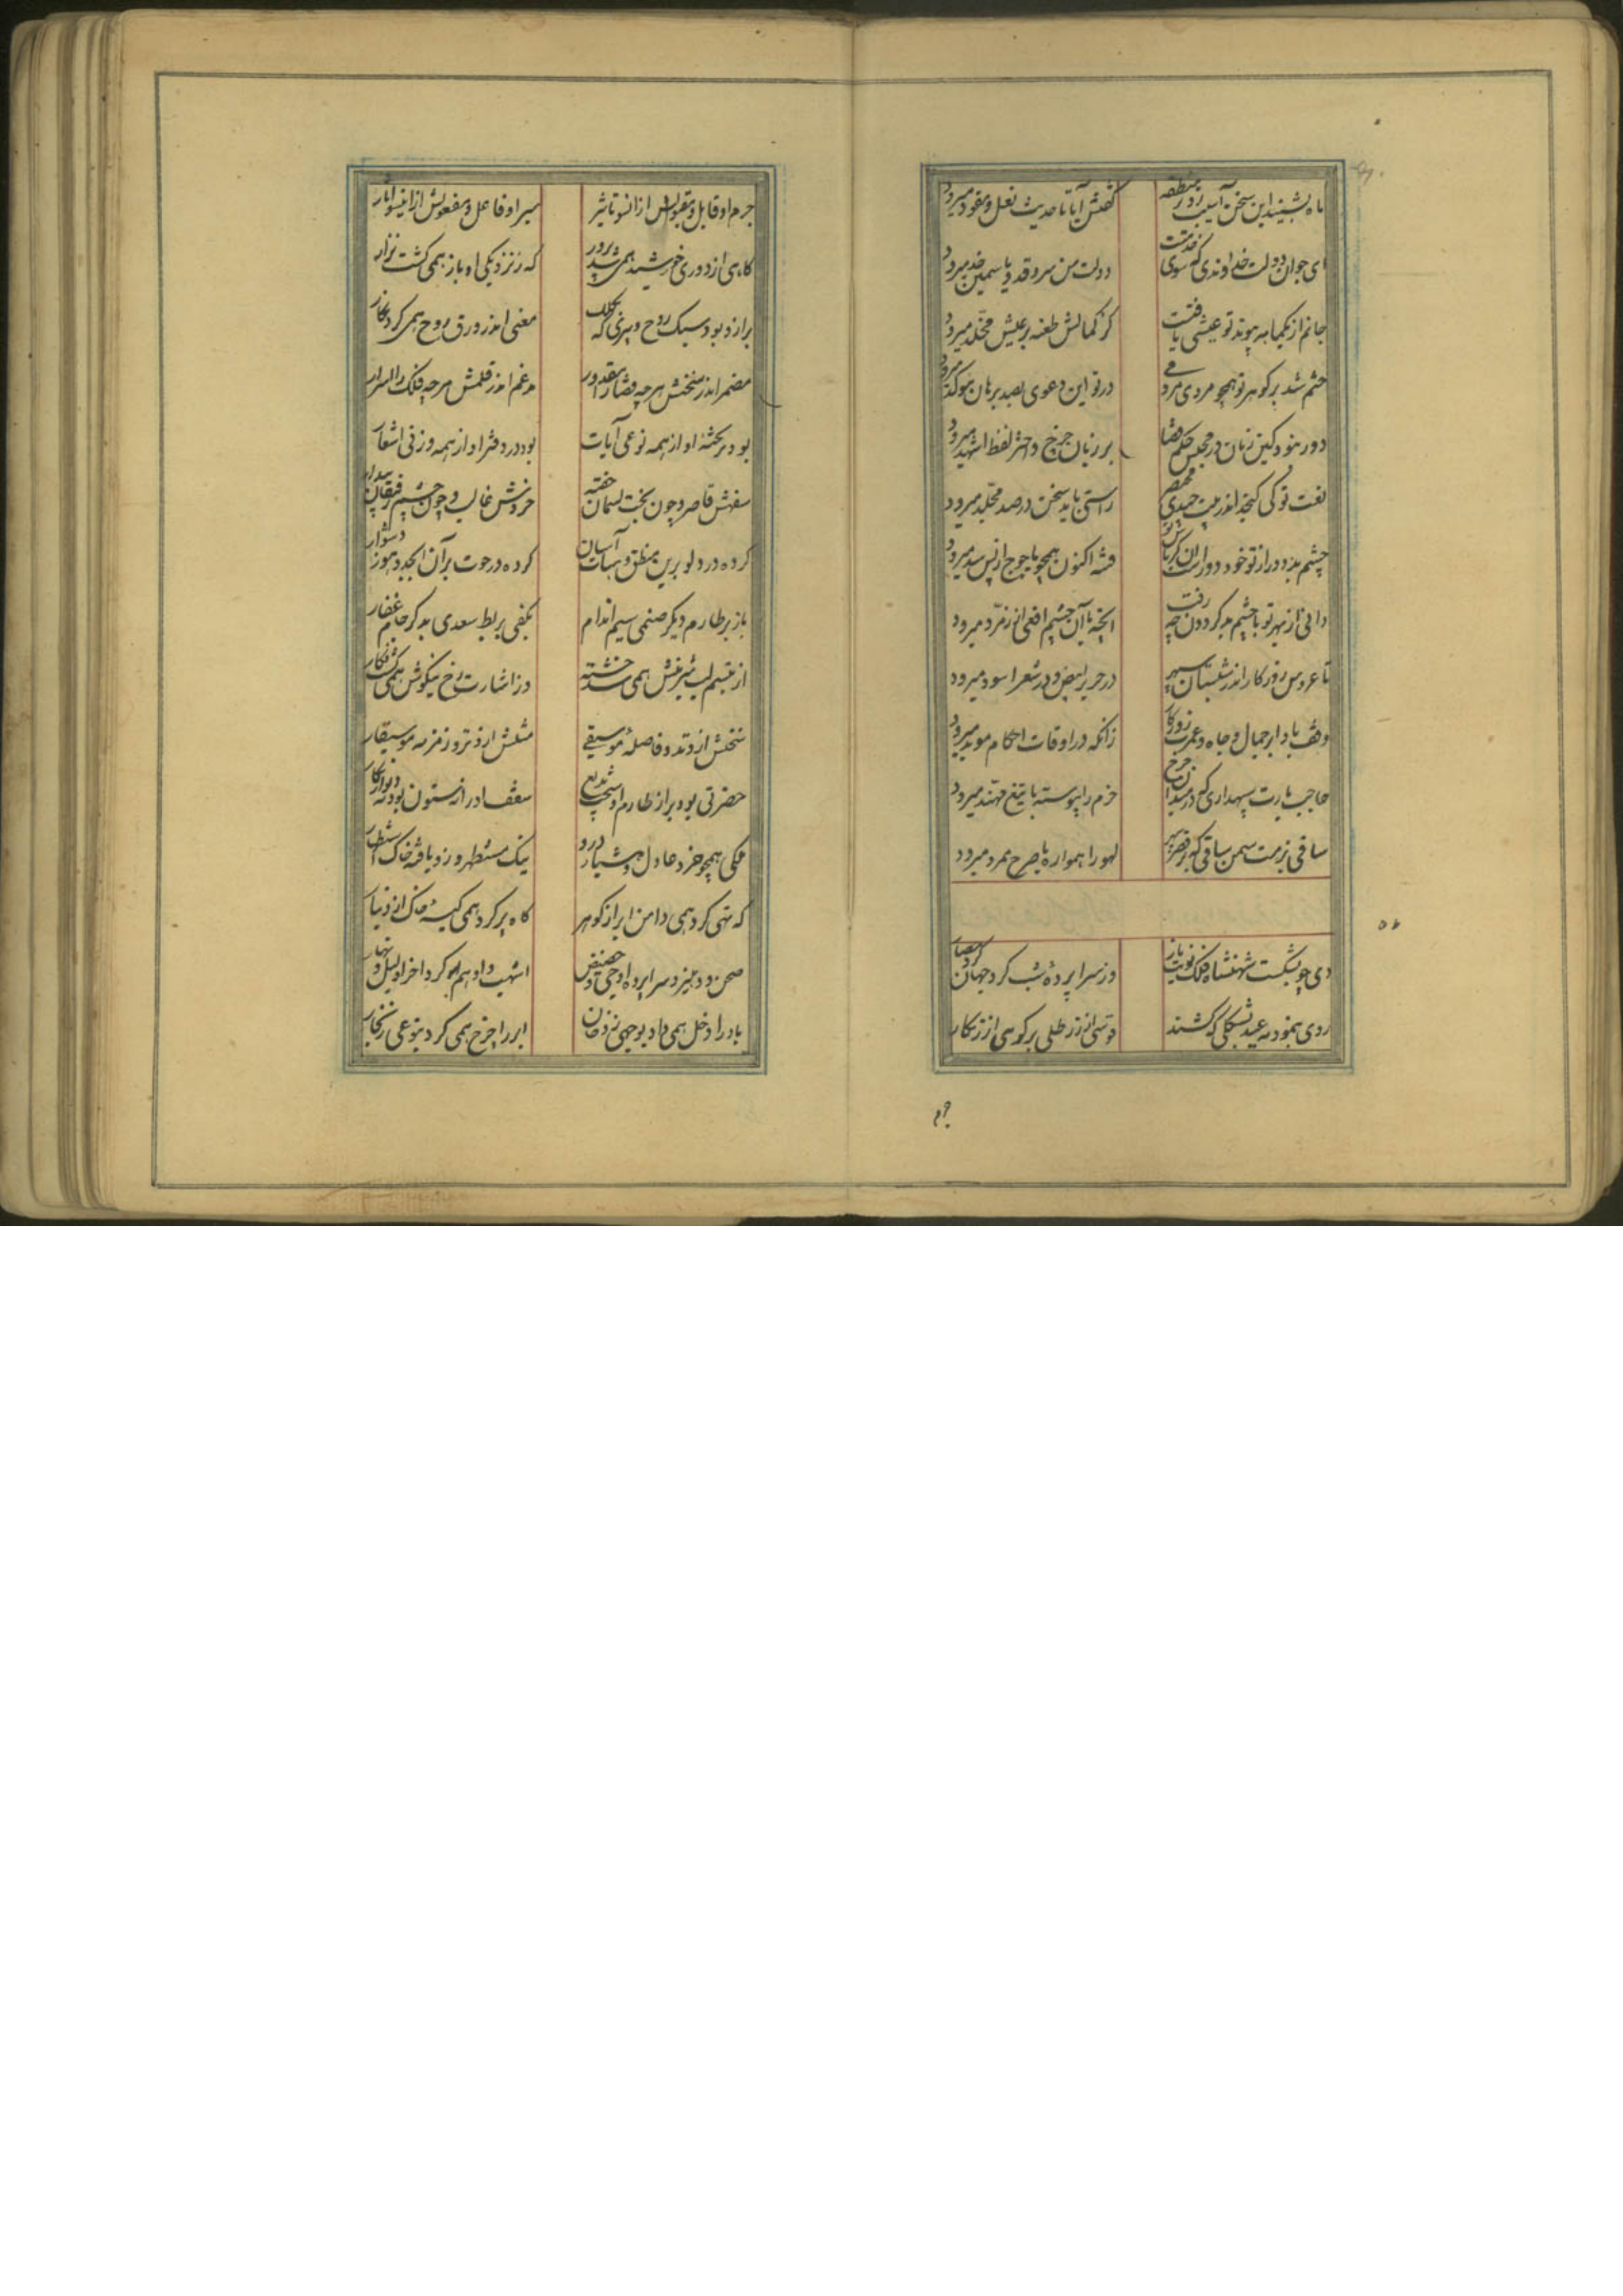 ماه بشنید این سخن آسیب زد در منطقه
گفتش آیا تا حدیث نعل و مقود میرود
ای جوان دولت خداوندی که سوی خدمتت
دولت من سرو قد و یاسمین خد میرود
جانم از یکماهه پیوند تو عیشی یافتست
کز کمالش طعنه بر عیش مخلد میرود
ختم شد بر گوهر تو همچو مردی مردمی
در تو این دعوی بصد برهان موکد میرود
دور نبود کین زبان در مجلس حکم قضا
بر زبان چرخ و اختر لفظ اشهد میرود
نعت تو کی گنجد اندر بیت چندی مختصر
راستی باید سخن در صد مجلد میرود
چشم بد دور از تو خود دورست کز بس باس تو
فتنه اکنون همچو یاجوج از پس سد میرود
دانی از مهر تو با چشم بد گردون چه رفت
آنچه با آن چشم افعی از زمرد میرود
تا عروس روزگار اندر شبستان سپهر
در حریر ابیض و در شعر اسود میرود
وقف باد ابر جمال و جاه و عمرت روزگار
زانکه در اوقات احکام موبد میرود
حاجب بارت سپهداری که در میدان چرخ
خرم را پیوسته با تیغ مهند میرود
ساقی بزمت سمن ساقی که بر قصر سپهر
لهو را همواره با صرح ممرد میرود
دی چو بشکست شهنشاه فلک نوبت بار
وز سراپرده شب کرد جهان گرد حصار
روی بنمود مه عید بشکلی که کشند
قوسی از زر طلی بر کرهی از زنگار
جرم او قابل و مقبولش از انسو تاثیر
سیر او فاعل و مفعولش از اینسو آثار
گاهی از دوری خورشید همی شد پرور
که ز نزدیکی او باز همی گشت نزار
برازو بود سبک روح دبیری که بکلک
معنی اندر ورق روح همی کرد نگار
مضمر اندر سخنش هرچه قضا را مقدور
مدغم اندر قلمش هرچه فلک را اسرار
بود بر تخته او از همه نوعی آیات
بود در دفتر او از همه وزنی اشعار
سفهش قاصر و چون بخت لئیمان خفته
خردش غالب و چون چشم رقیبان بیدار
کرده در دلو برین منطق و هیات آسان
کرده در حوت بر آن ابجد و هوز دشوار
باز بر طارم دیگر صنمی سیم اندام
بکفی بربط سعدی بدگر جام عقار
از تبسم لب شیرینش همی شد خسته
وز اشارت رخ نیکوش همی گشت فگار
سخنش از وتد و فاصله موسیقی
مثلش از وتر و زمزمه موسیقار
حضرتی بود بر از طارم و اسبی بدیع
سقف او را نه ستون بود و نه دیوار بکار
ملکی همچو خرد عادل و هشیار درو
نیک مستظهر و زو یافته خاک استظهار
که تهی کرد همی دامن ابر از گوهر
گاه پر کرد همی کیسه خاک از دینار
صحن و دهلیز و سراپرده اوجی و حضیض
اشهب و ادهم او کرد آخر او لیل و نهار
باد را دخل همی داد بوجهی ز دخان
ابر را خرج همی کرد بنوعی ز بخار